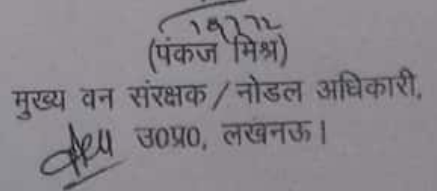 (पंकज मिश्र)
मुख्य वन संरक्षक / नोडल अधिकारी,
उ०प्र०, लखनऊ।